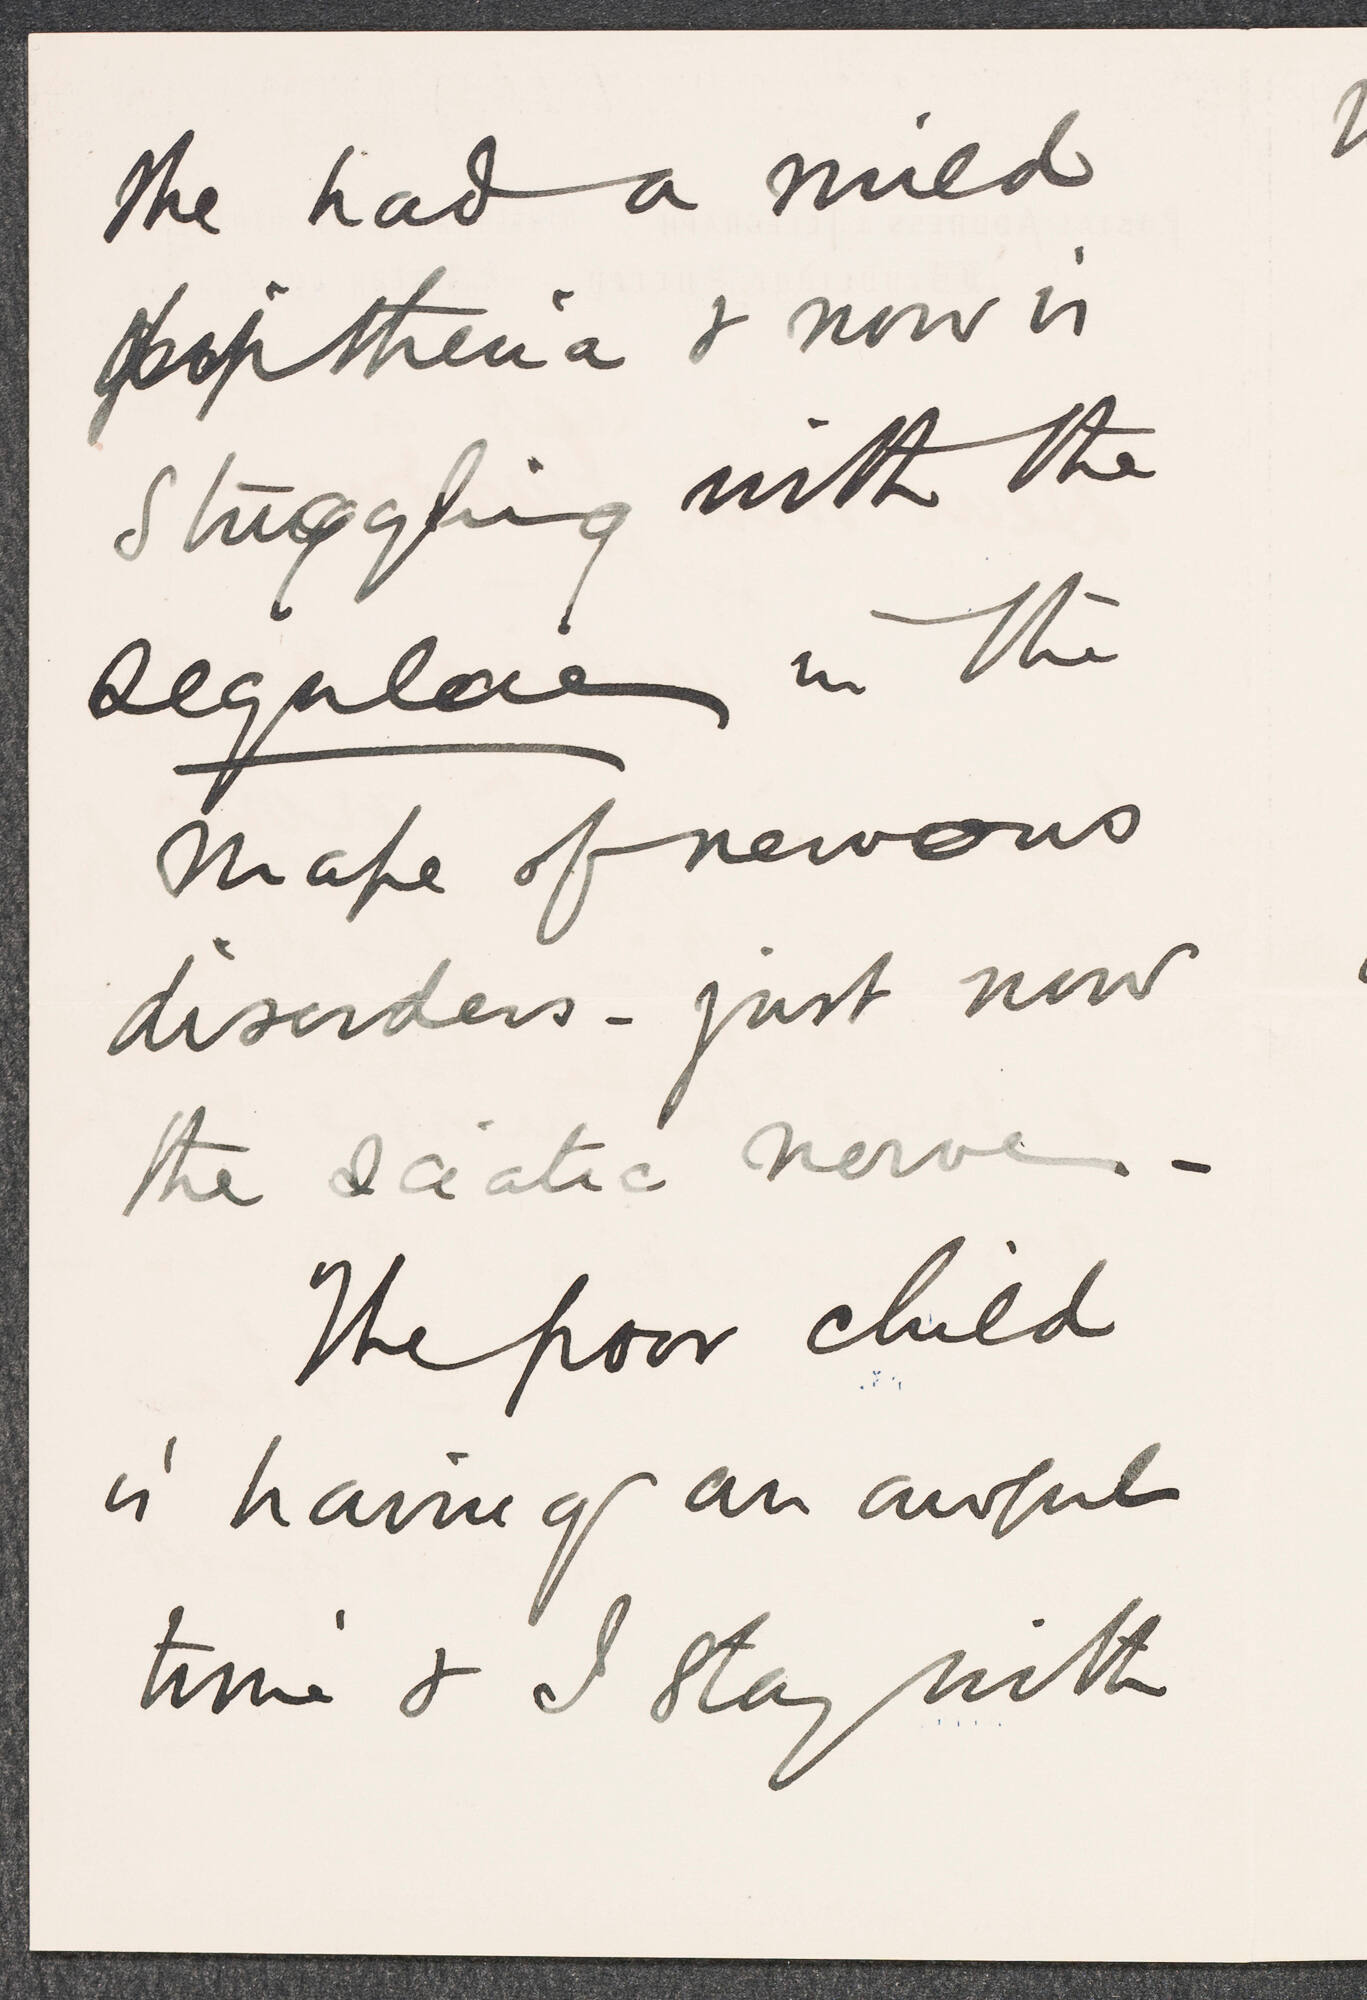 She had a mild
diptheria & now is
struggling with the
sequelae in the
shape of nervous
disorders - just now
the sciatic nerve. -
The poor child
is having an awful
time & I stay with